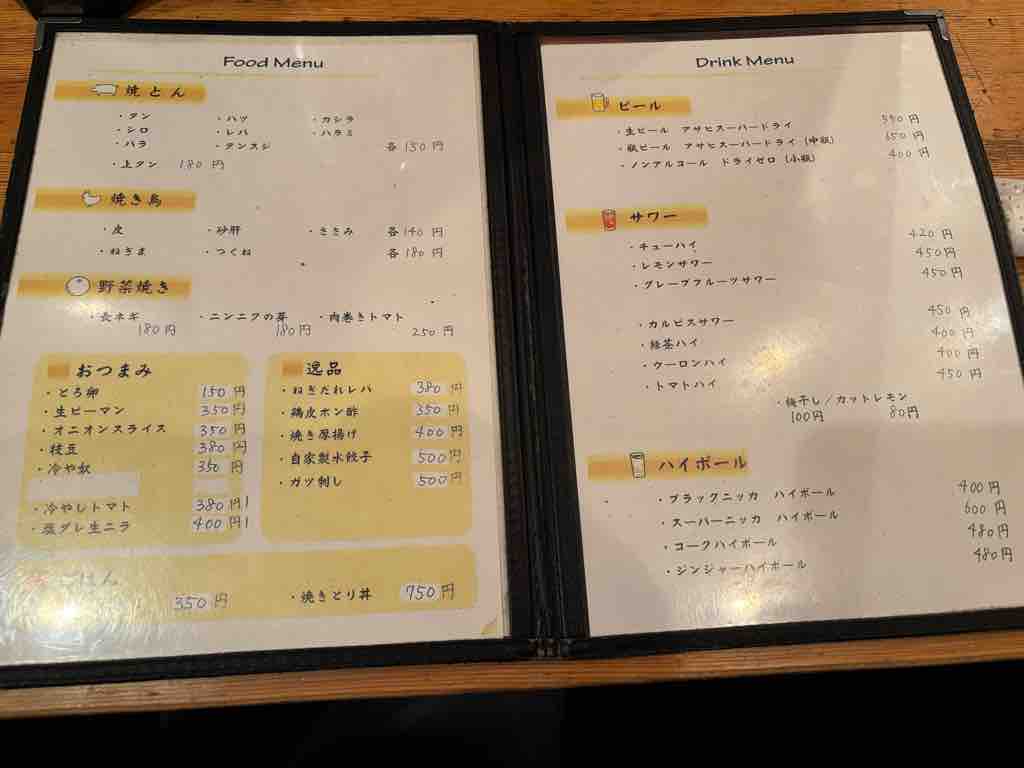 Food Menu
焼とん
・タン ・ハツ ・カシラ
・シロ ・レバ ・ハラミ
・バラ ・タンスジ 各150円
・上タン 180円
焼き鳥
・皮 ・砂肝 ・ささみ 各140円
・ねぎま ・つくね 各180円
野菜焼き
・長ネギ ・ニンニクの芽 ・肉巻きトマト
180円 180円 250円
おつまみ
・とろ卵 150円
・生ピーマン 350円
・オニオンスライス 350円
・枝豆 380円
・冷や奴 350円
・冷やしトマト 380円
・塩ダレ生ニラ 400円
逸品
・ねぎだれレバ 380円
・鶏皮ポン酢 350円
・焼き厚揚げ 400円
・自家製水餃子 500円
・ガツ刺し 500円
ごはん
350円 ・焼きとり丼 750円
Drink Menu
ビール
・生ビール アサヒスーパードライ
・瓶ビール アサヒスーパードライ (中瓶) 650円
・ノンアルコール ドライゼロ (小瓶) 400円
サワー
・チューハイ 420円
・レモンサワー 450円
・グレープフルーツサワー 450円
・カルピスサワー 450円
・緑茶ハイ 400円
・ウーロンハイ 400円
・トマトハイ 450円
・梅干し／カットレモン
100円 80円
ハイボール
・ブラックニッカ ハイボール 400円
・スーパーニッカ ハイボール 600円
・コークハイボール 480円
・ジンジャーハイボール 480円